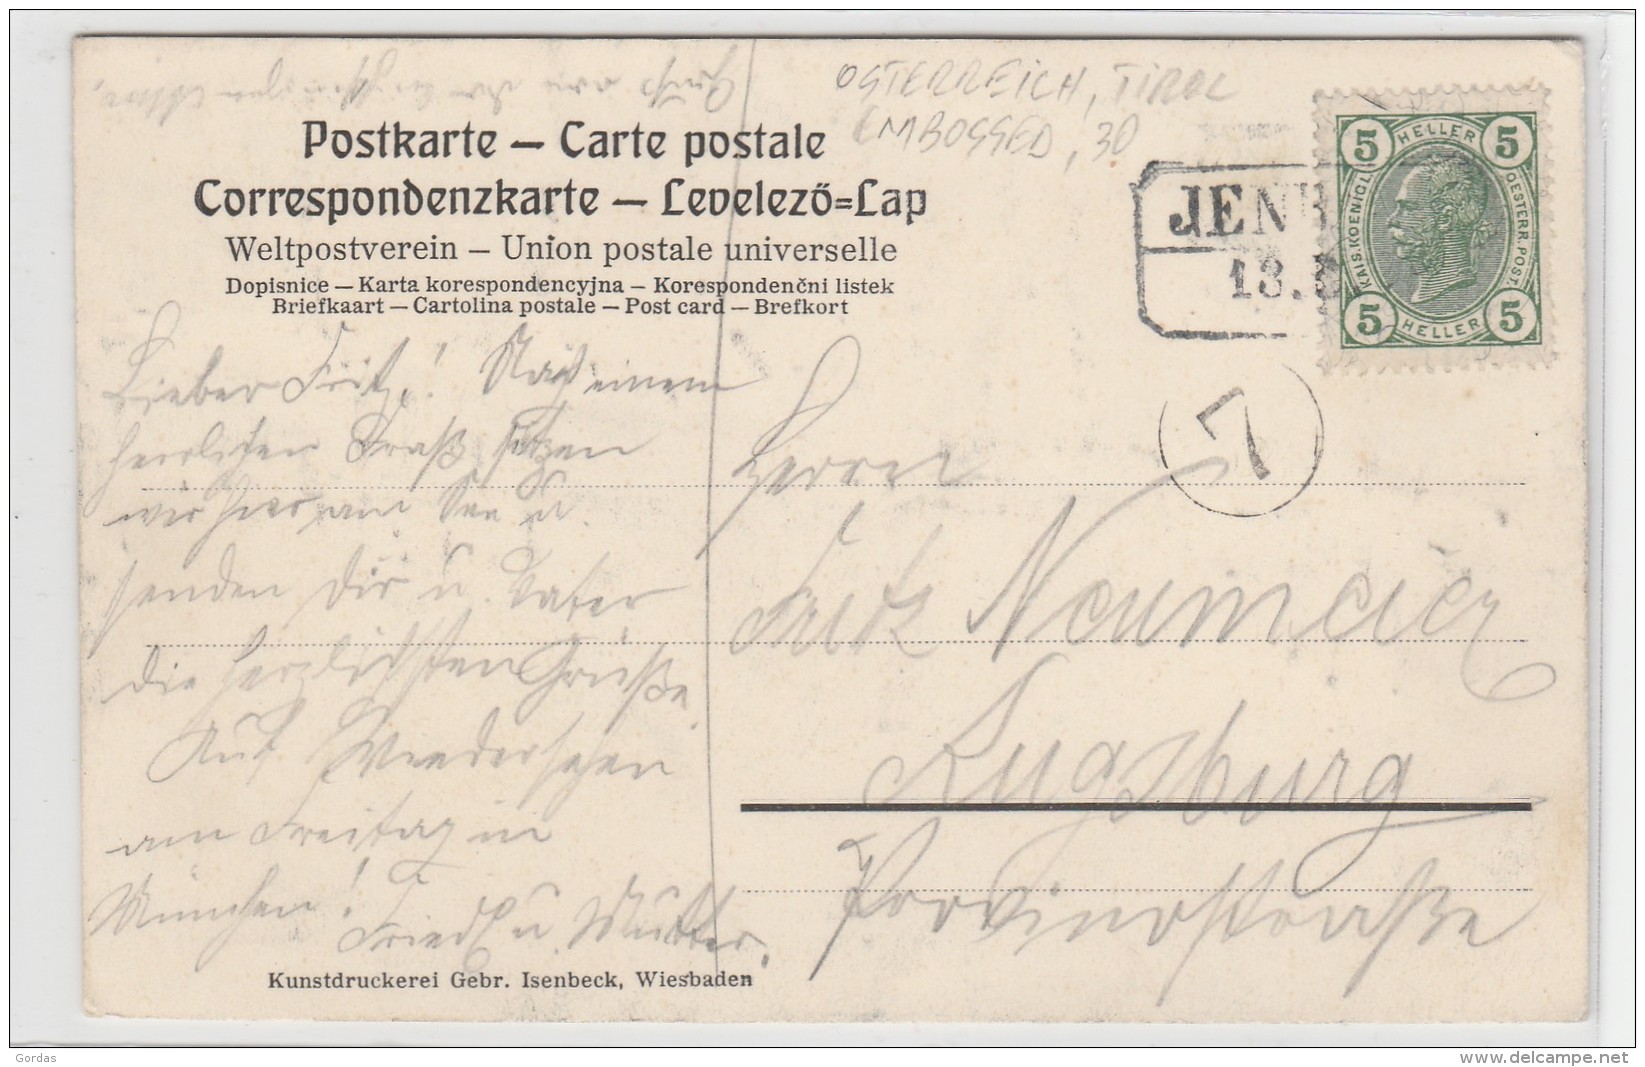 OSTERREICH, TIROL
EMBOSSED, 30
Postkarte — Carte postale
Correspondenzkarte — Levelező=Lap
Weltpostverein — Union postale universelle
Dopisnice — Karta korespondencyjna — Korespondenční listek
Briefkaart — Cartolina postale — Post card — Brefkort
JEN
13.
5 HELLER 5
KAIS. KOENIGL. OESTERR. POST.
5 HELLER 5
7
Lieber Fritz! Nach einem
herrlichen Fraß sitzen
wir hier am See u.
senden Dir u. Vater
die herzlichsten Grüße.
Auf Wiedersehen
am Freitag in
München! Friedl u. Mutter.
Herrn
Fritz Neumeier
Augsburg
Provinostraße
Kunstdruckerei Gebr. Isenbeck, Wiesbaden
Gordas
delcampe.net